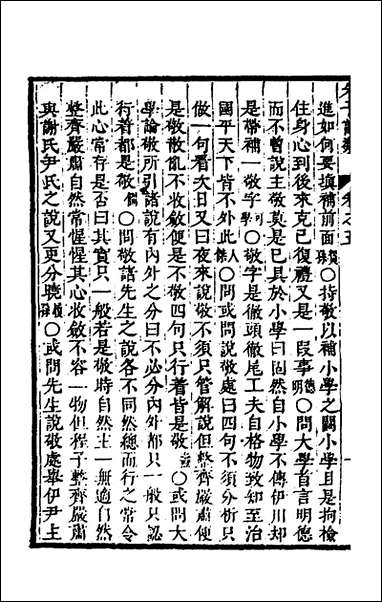 進如何要填補前面○持敬以補小學之闕小學且是拘檢
住身心到後來克己復禮又是一段事德明○問大學首言明德
而不曾說主敬莫是已具於小學曰固然自小學不傳伊川却
是帶補一敬字可學○敬字是徹頭徹尾工夫自格物致知至治
國平天下皆不外此人傑○問或問說敬處曰四句不須分析只
做一句看次日又曰夜來說敬不須只管解說但整齊嚴肅便
是敬散亂不收斂便是不敬四句只行着皆是敬燾○或問大
學論敬所引諸說有內外之分曰不必分內外都只一般只認
行着都是敬僩○問敬諸先生之說各不同然總而行之常令
此心常存是否曰其實只一般若是敬時自然主一無適自然
整齊嚴肅自然常惺惺其心收斂不容一物但程子整齊嚴肅
與謝氏尹氏之說又更分曉○或問先生說敬處舉伊尹主